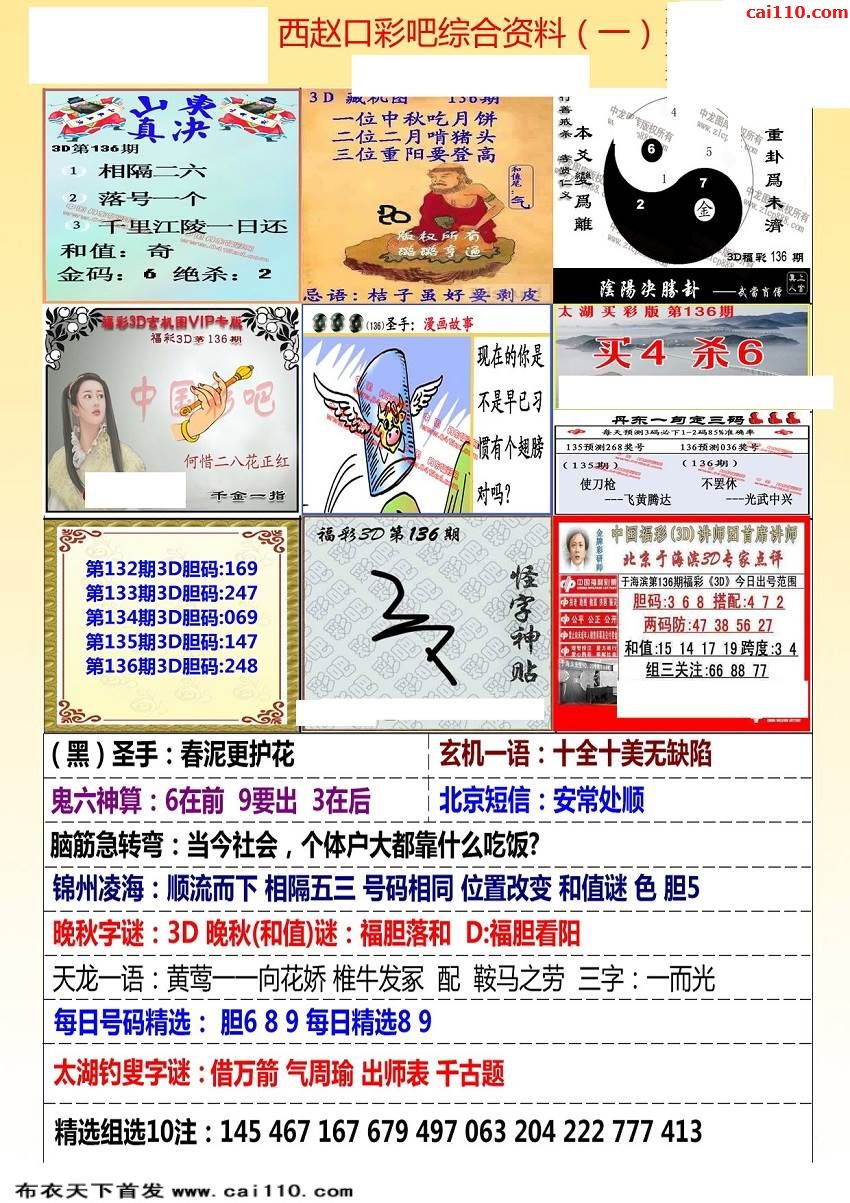 cai110.com
西赵口彩吧综合资料（一）
山東
真决
3D第136期
1 相隔二六
2 落号一个
3 千里江陵一日还
和值：奇
金码：6 绝杀：2
3D 藏机图 136期
一位中秋吃月饼
二位二月啃猪头
三位重阳要登高
和值尾：气
版权所有
忌语：桔子虽好要剥皮
本爻變爲離
重卦爲未濟
4
5
6
1
7
2
金
3D福彩136期
陰陽决勝卦
福彩3D玄机图VIP专版
福彩3D第136期
中国彩吧
何惜二八花正红
千金一指
(136)圣手：漫画故事
现在的你是
不是早已习
惯有个翅膀
对吗？
太湖买彩版 第136期
买4 杀6
丹东一句定三码
每天预测3码必下1-2码85%准确率
135预测268奖号
136预测036奖号
(135期)
使刀枪
---飞黄腾达
(136期)
不罢休
---光武中兴
第132期3D胆码:169
第133期3D胆码:247
第134期3D胆码:069
第135期3D胆码:147
第136期3D胆码:248
福彩3D第136期
怪字神贴
金牌彩研师
中国福彩(3D)讲师团首席讲师
北京于海滨3D专家点评
中国福利彩票
于海滨第136期福彩《3D》今日出号范围
胆码:3 6 8 搭配:4 7 2
两码防:47 38 56 27
和值:15 14 17 19 跨度:3 4
组三关注:66 88 77
公平 公正 公开
（黑）圣手：春泥更护花
玄机一语：十全十美无缺陷
鬼六神算：6在前 9要出 3在后
北京短信：安常处顺
脑筋急转弯：当今社会，个体户大都靠什么吃饭?
锦州凌海：顺流而下 相隔五三 号码相同 位置改变 和值谜 色 胆5
晚秋字谜：3D 晚秋(和值)谜：福胆落和 D:福胆看阳
天龙一语：黄莺一一向花娇 椎牛发冢 配 鞍马之劳 三字：一而光
每日号码精选： 胆6 8 9 每日精选8 9
太湖钓叟字谜：借万箭 气周瑜 出师表 千古题
精选组选10注：145 467 167 679 497 063 204 222 777 413
布衣天下首发 www.cai110.com